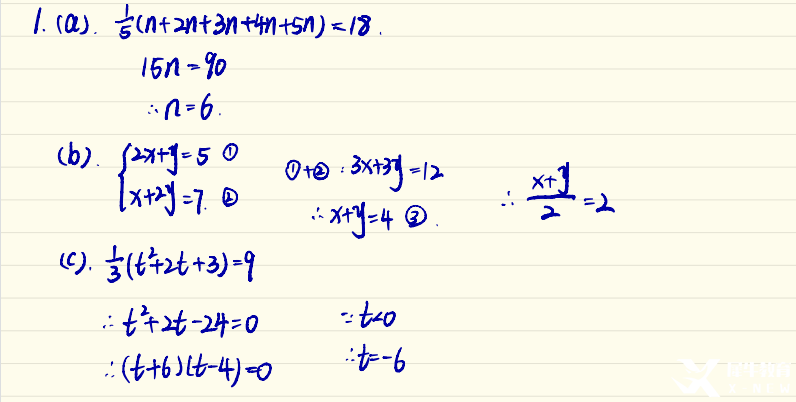 1. (a). 1/5(n+2n+3n+4n+5n)=18.
15n=90
∴n=6.
(b). {2x+y=5 ①
x+2y=7. ②
①+②: 3x+3y=12
∴x+y=4 ③.
∴ (x+y)/2 =2
(c). 1/3(t²+2t+3)=9
∴t²+2t-24=0
∴(t+6)(t-4)=0
∵t<0
∴t=-6